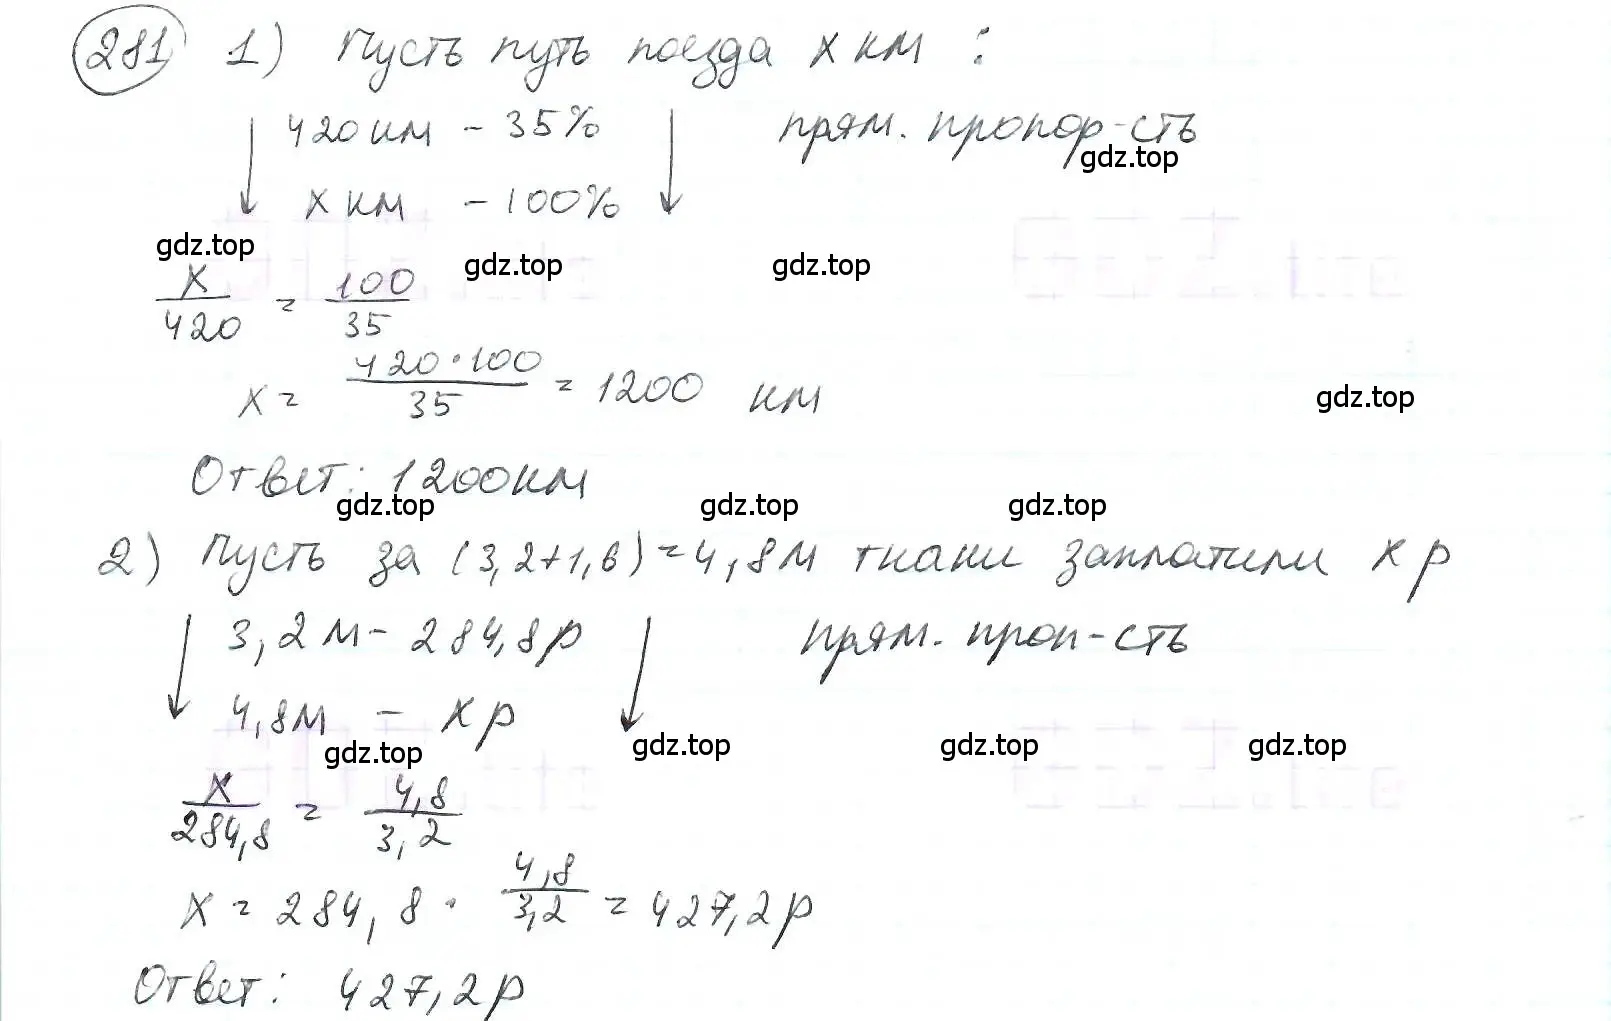 281 1) Пусть путь поезда x км :
420 км - 35% прям. пропор-сть
gdz.top
x км - 100%
gdz.top gdz.top gdz.top
x/420 = 100/35
x = 420·100/35 = 1200 км
gdz.top
Ответ: 1200 км
gdz.top gdz.top gdz.top
2) Пусть за (3,2+1,6)=4,8м ткани заплатили x р
3,2 м - 284,8р прям. проп-сть
4,8м - x р
gdz.top gdz.top gdz.top gdz.top
x/284,8 = 4,8/3,2
x = 284,8 · 4,8/3,2 = 427,2р
Ответ: 427,2р